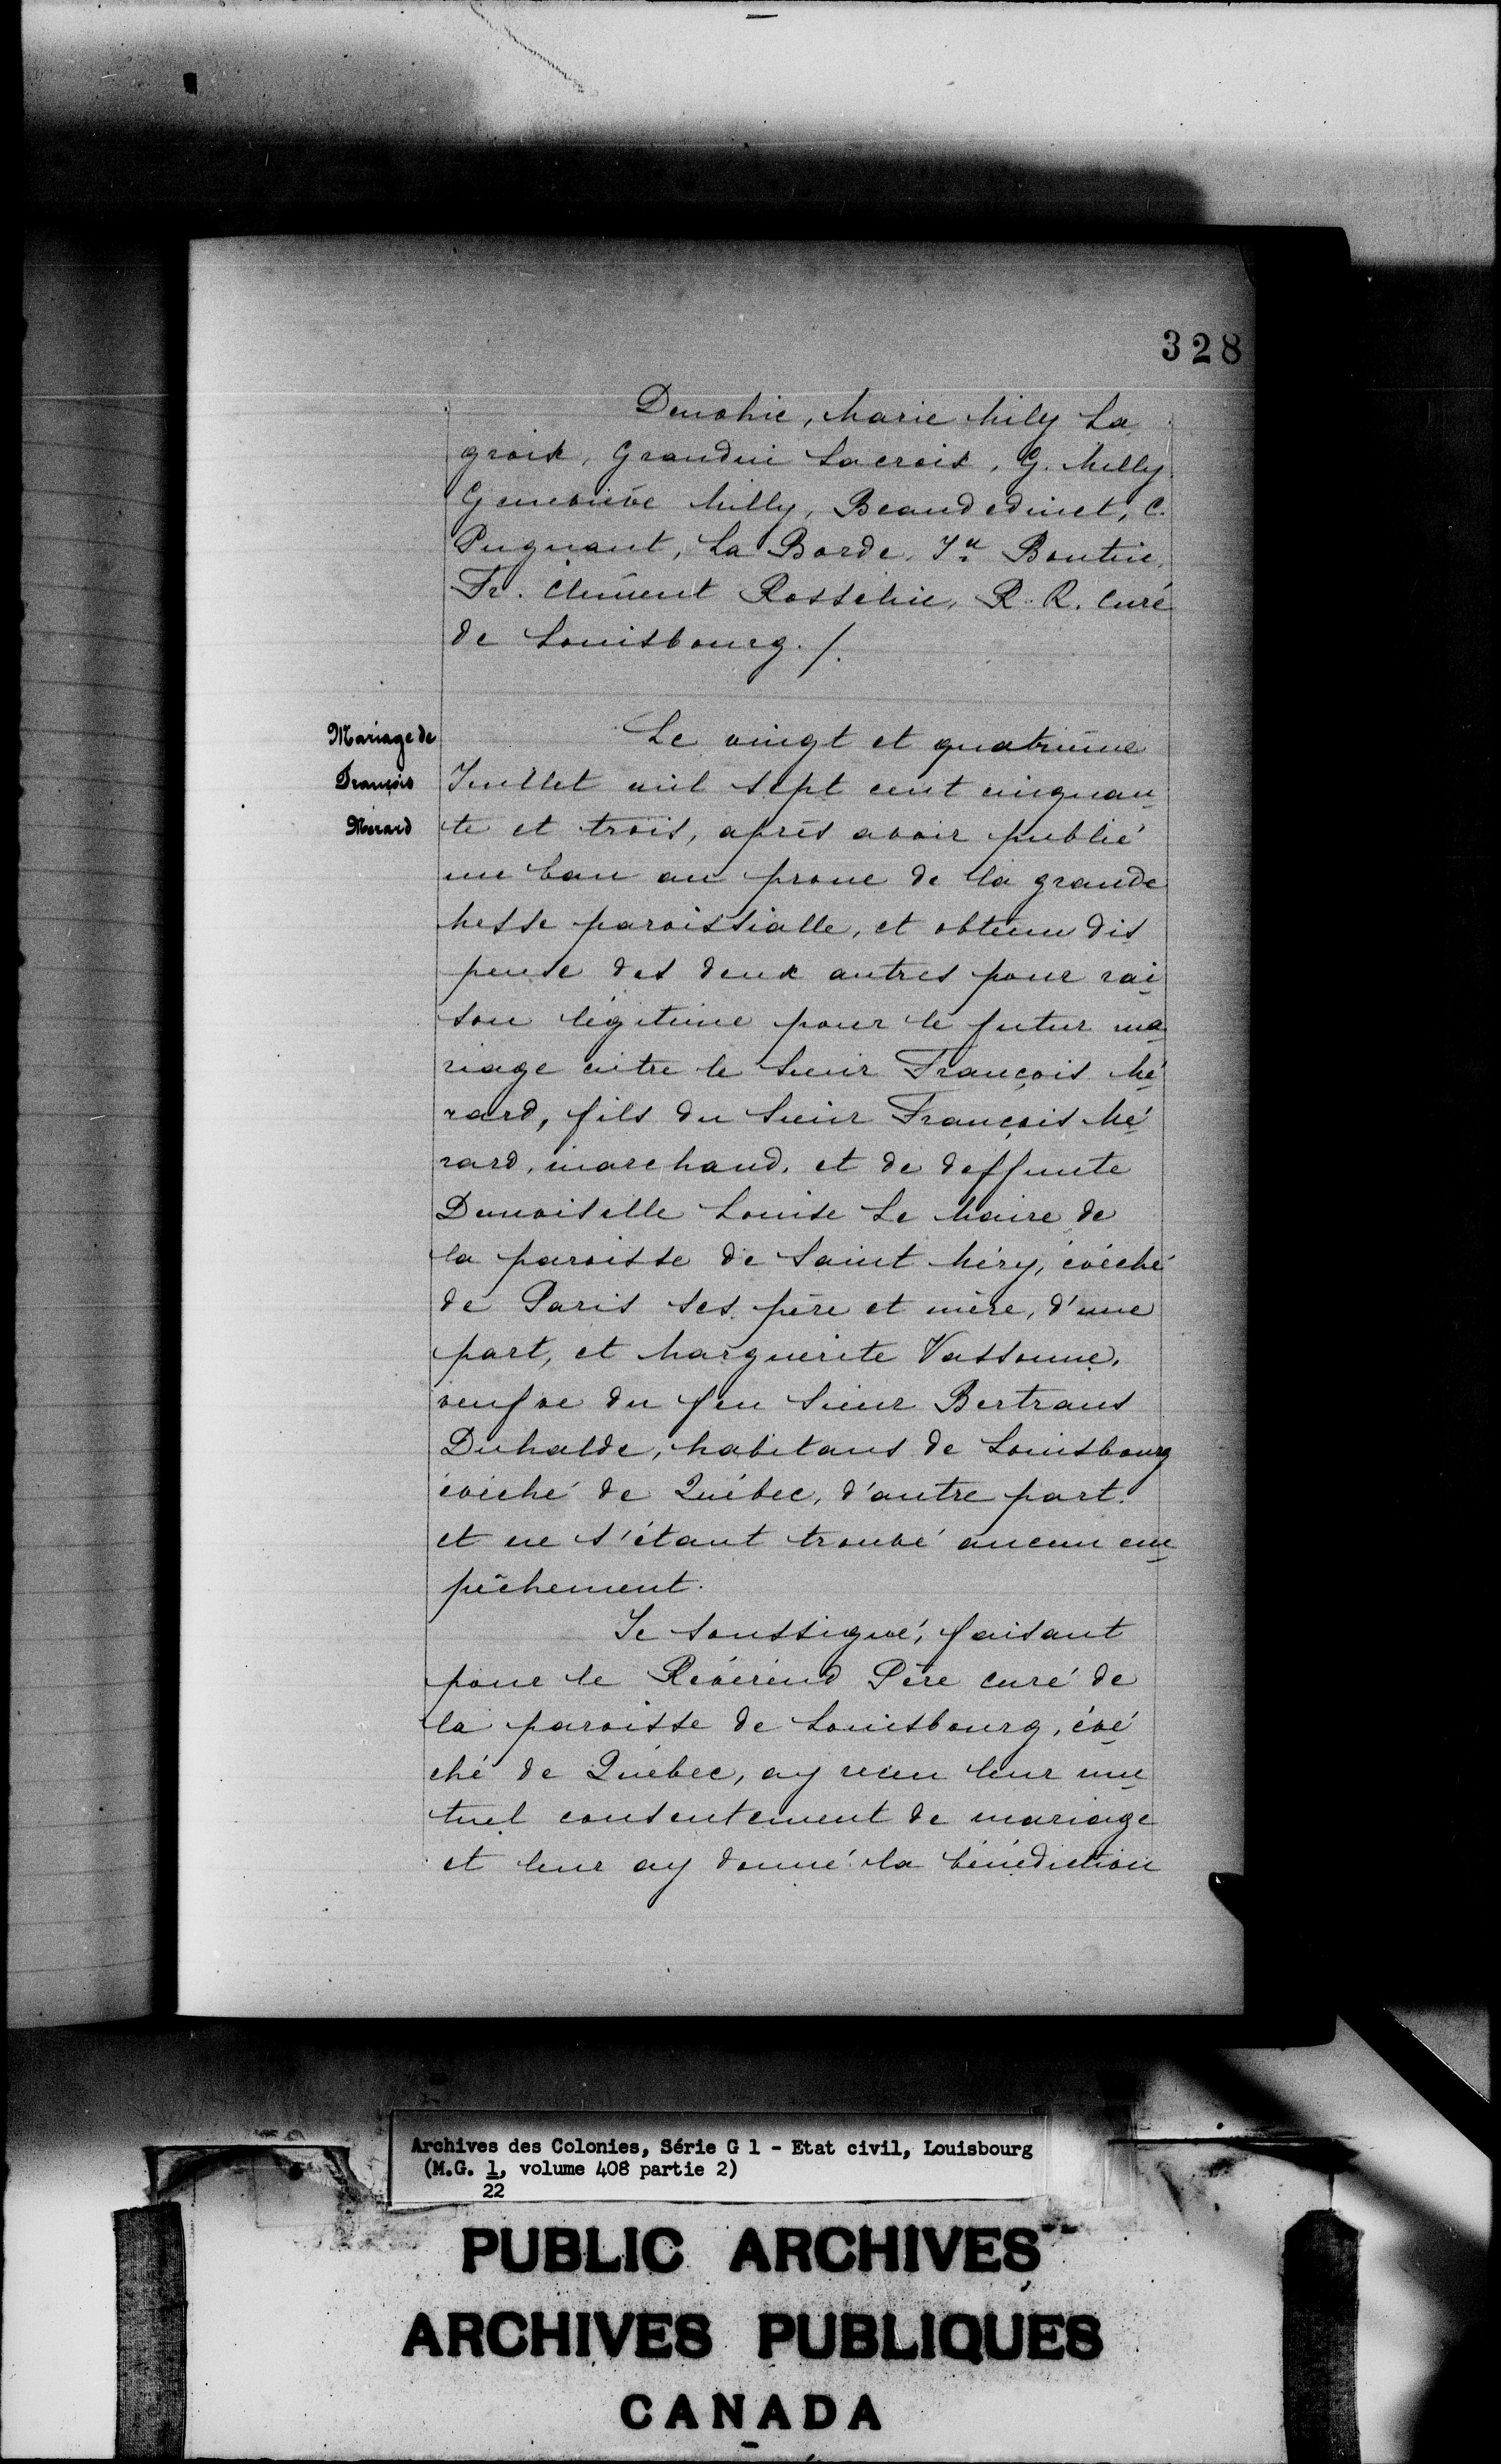 328
Denohie, Marie Mily La
groix, Grandin Lacroix, G. Milly
Geneviève Milly, Beaudedinet, C.
Pugnant, La Borde, Boutin,
Fr. Clément Rosselin, R. R. Curé
de Louisbourg. /.
Mariage de
François
Mérard
Le vingt et quatrième
Juillet mil sept cent cinquan
te et trois, après avoir publié
un ban au prone de la grande
Messe paroissialle, et obtenu dis
pense des deux autres pour rai
son légitime pour le futur ma
riage entre le Sieur François Mé
rard, fils du Sieur François Mé
rard, marchand, et de deffunte
Demoiselle Louise Le Maire de
la paroisse de Saint Méry, évêché
de Paris ses père et mère, d'une
part, et Marguerite Vassonne,
veufve du feu Sieur Bertrans
Duhalde, habitans de Louisbourg
évêché de Québec, d'autre part.
et ne s'étant trouvé aucun em
pêchement.
Je soussigné, faisant
pour le Révérend Père curé de
la paroisse de Louisbourg, évê
ché de Québec, ay reçu leur mu
tuel consentement de mariage
et leur ay donné la bénédiction
Archives des Colonies, Série G 1 - Etat civil, Louisbourg
(M.G. 1, volume 408 partie 2)
22
PUBLIC ARCHIVES
ARCHIVES PUBLIQUES
CANADA